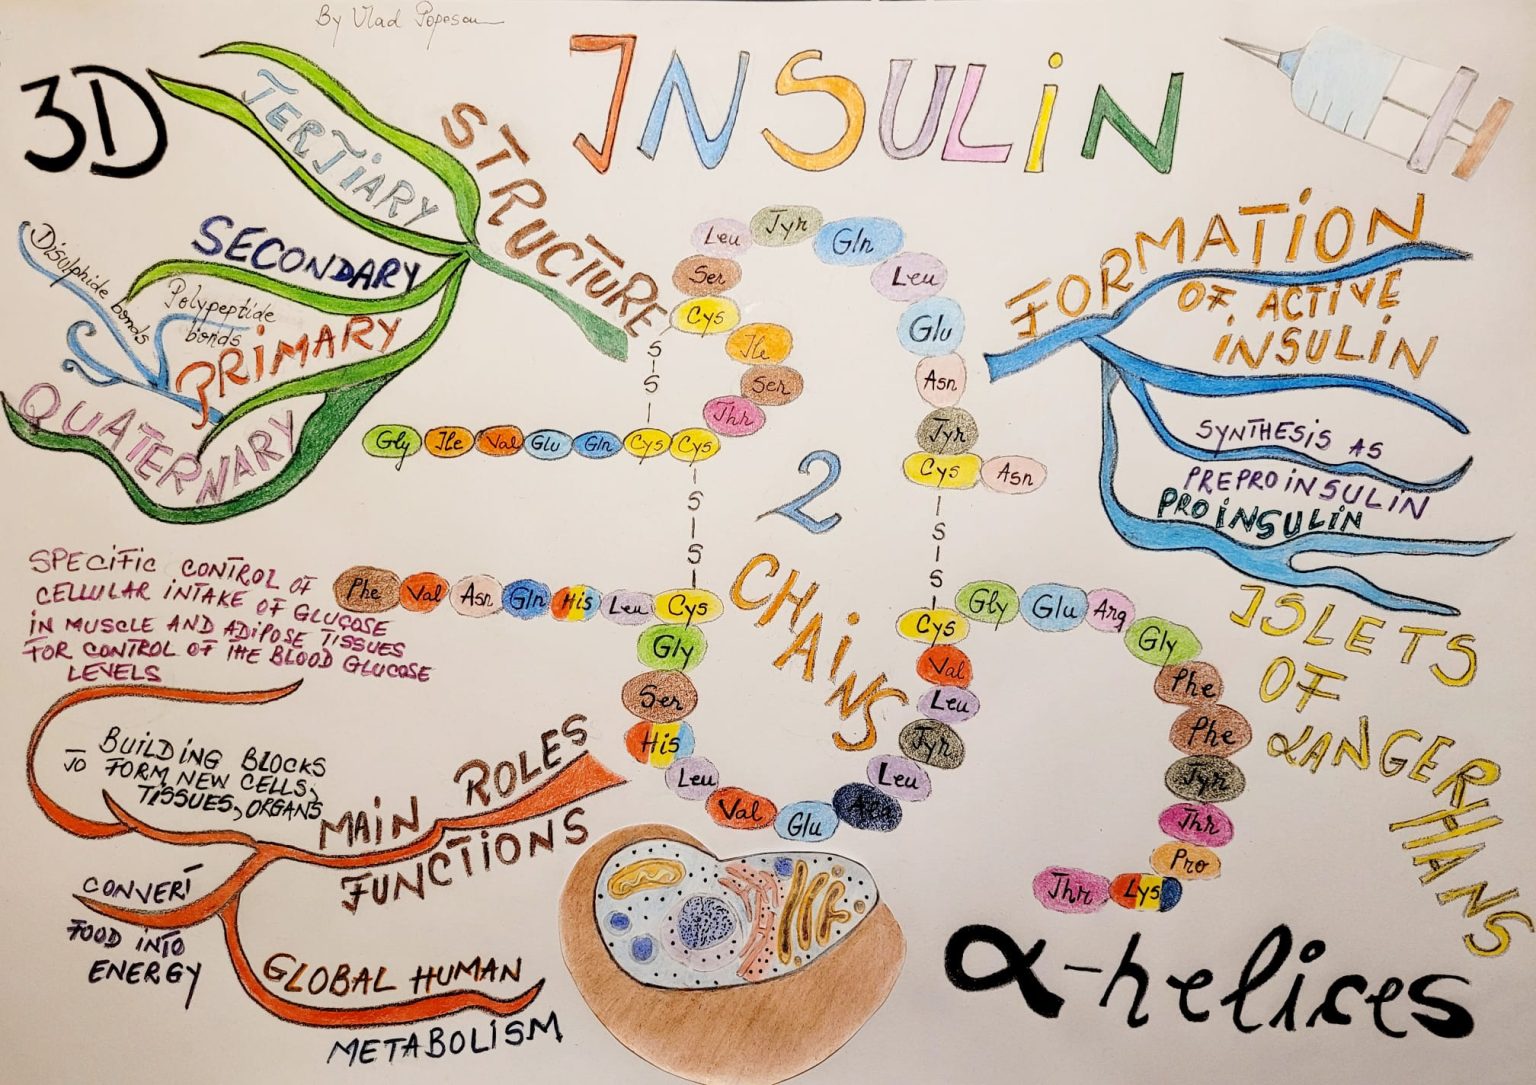 By Vlad Popescu
INSULiN
3D
STRUCTURE
TERTiARY
SECONDARY
Disulphide bonds
Polypeptide
bonds
PRiMARY
QUATERNARY
FORMATiON
OF ACTiVE
iNSULiN
SYNTHESiS AS
PREPROiNSULiN
PROiNSULiN
ISLETS
OF
LANGERHANS
2
CHAiNS
Gly Ile Val Glu Gln Cys Cys Thr Ser Ile Cys Ser Leu Tyr Gln Leu Glu Asn Tyr Cys Asn
S
S
S
S
S
S
S
S
Phe Val Asn Gln His Leu Cys Gly Ser His Leu Val Glu Ala Leu Tyr Leu Val Cys Gly Glu Arg Gly Phe Phe Tyr Thr Pro Lys Thr
SPECiFiC CONTROL OF
CELLULAR iNTAKE OF GLUCOSE
iN MUSCLE AND ADiPOSE TiSSUES
FOR CONTROL OF THE BLOOD GLUCOSE
LEVELS
BUiLDiNG BLOCKS
TO FORM NEW CELLS,
TiSSUES, ORGANS
MAiN ROLES
FUNCTiONS
CONVERT
FOOD iNTO
ENERGY
GLOBAL HUMAN
METABOLiSM
α-helices